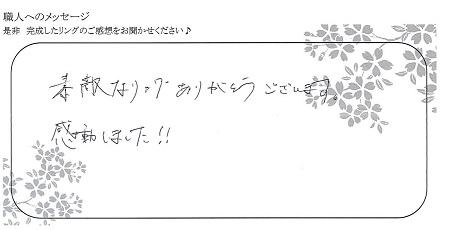 職人へのメッセージ
是非 完成したリングのご感想をお聞かせください♪
素敵なリングありがとうございます。
感動しました!!